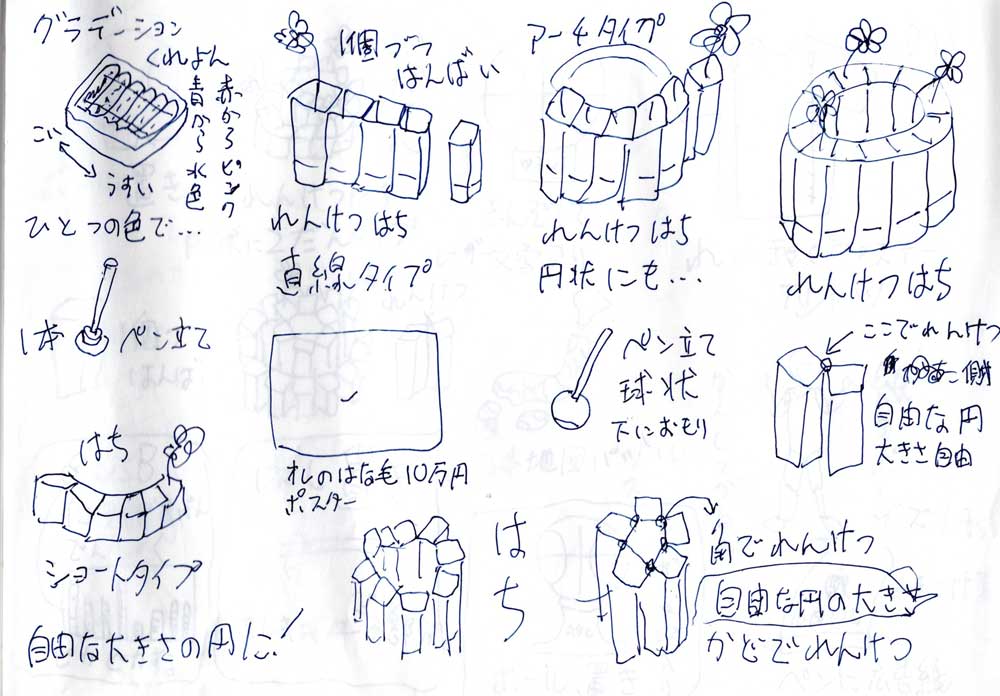 グラデーション
くれよん
赤からピンク
青から水色
こい
うすい
ひとつの色で…
1個づつ
はんばい
れんけつはち
直線タイプ
アーチタイプ
れんけつはち
円状にも…
れんけつはち
1本 ペン立て
オレのはな毛10万円
ポスター
ペン立て
球状
下におもり
ここでれんけつ
側
自由な円
大きさ自由
はち
ショートタイプ
自由な大きさの円に!
はち
角でれんけつ
自由な円の大きさ
かどでれんけつ